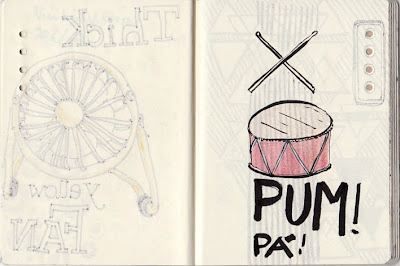 Thick
yellow
FAN
PUM!
PA!